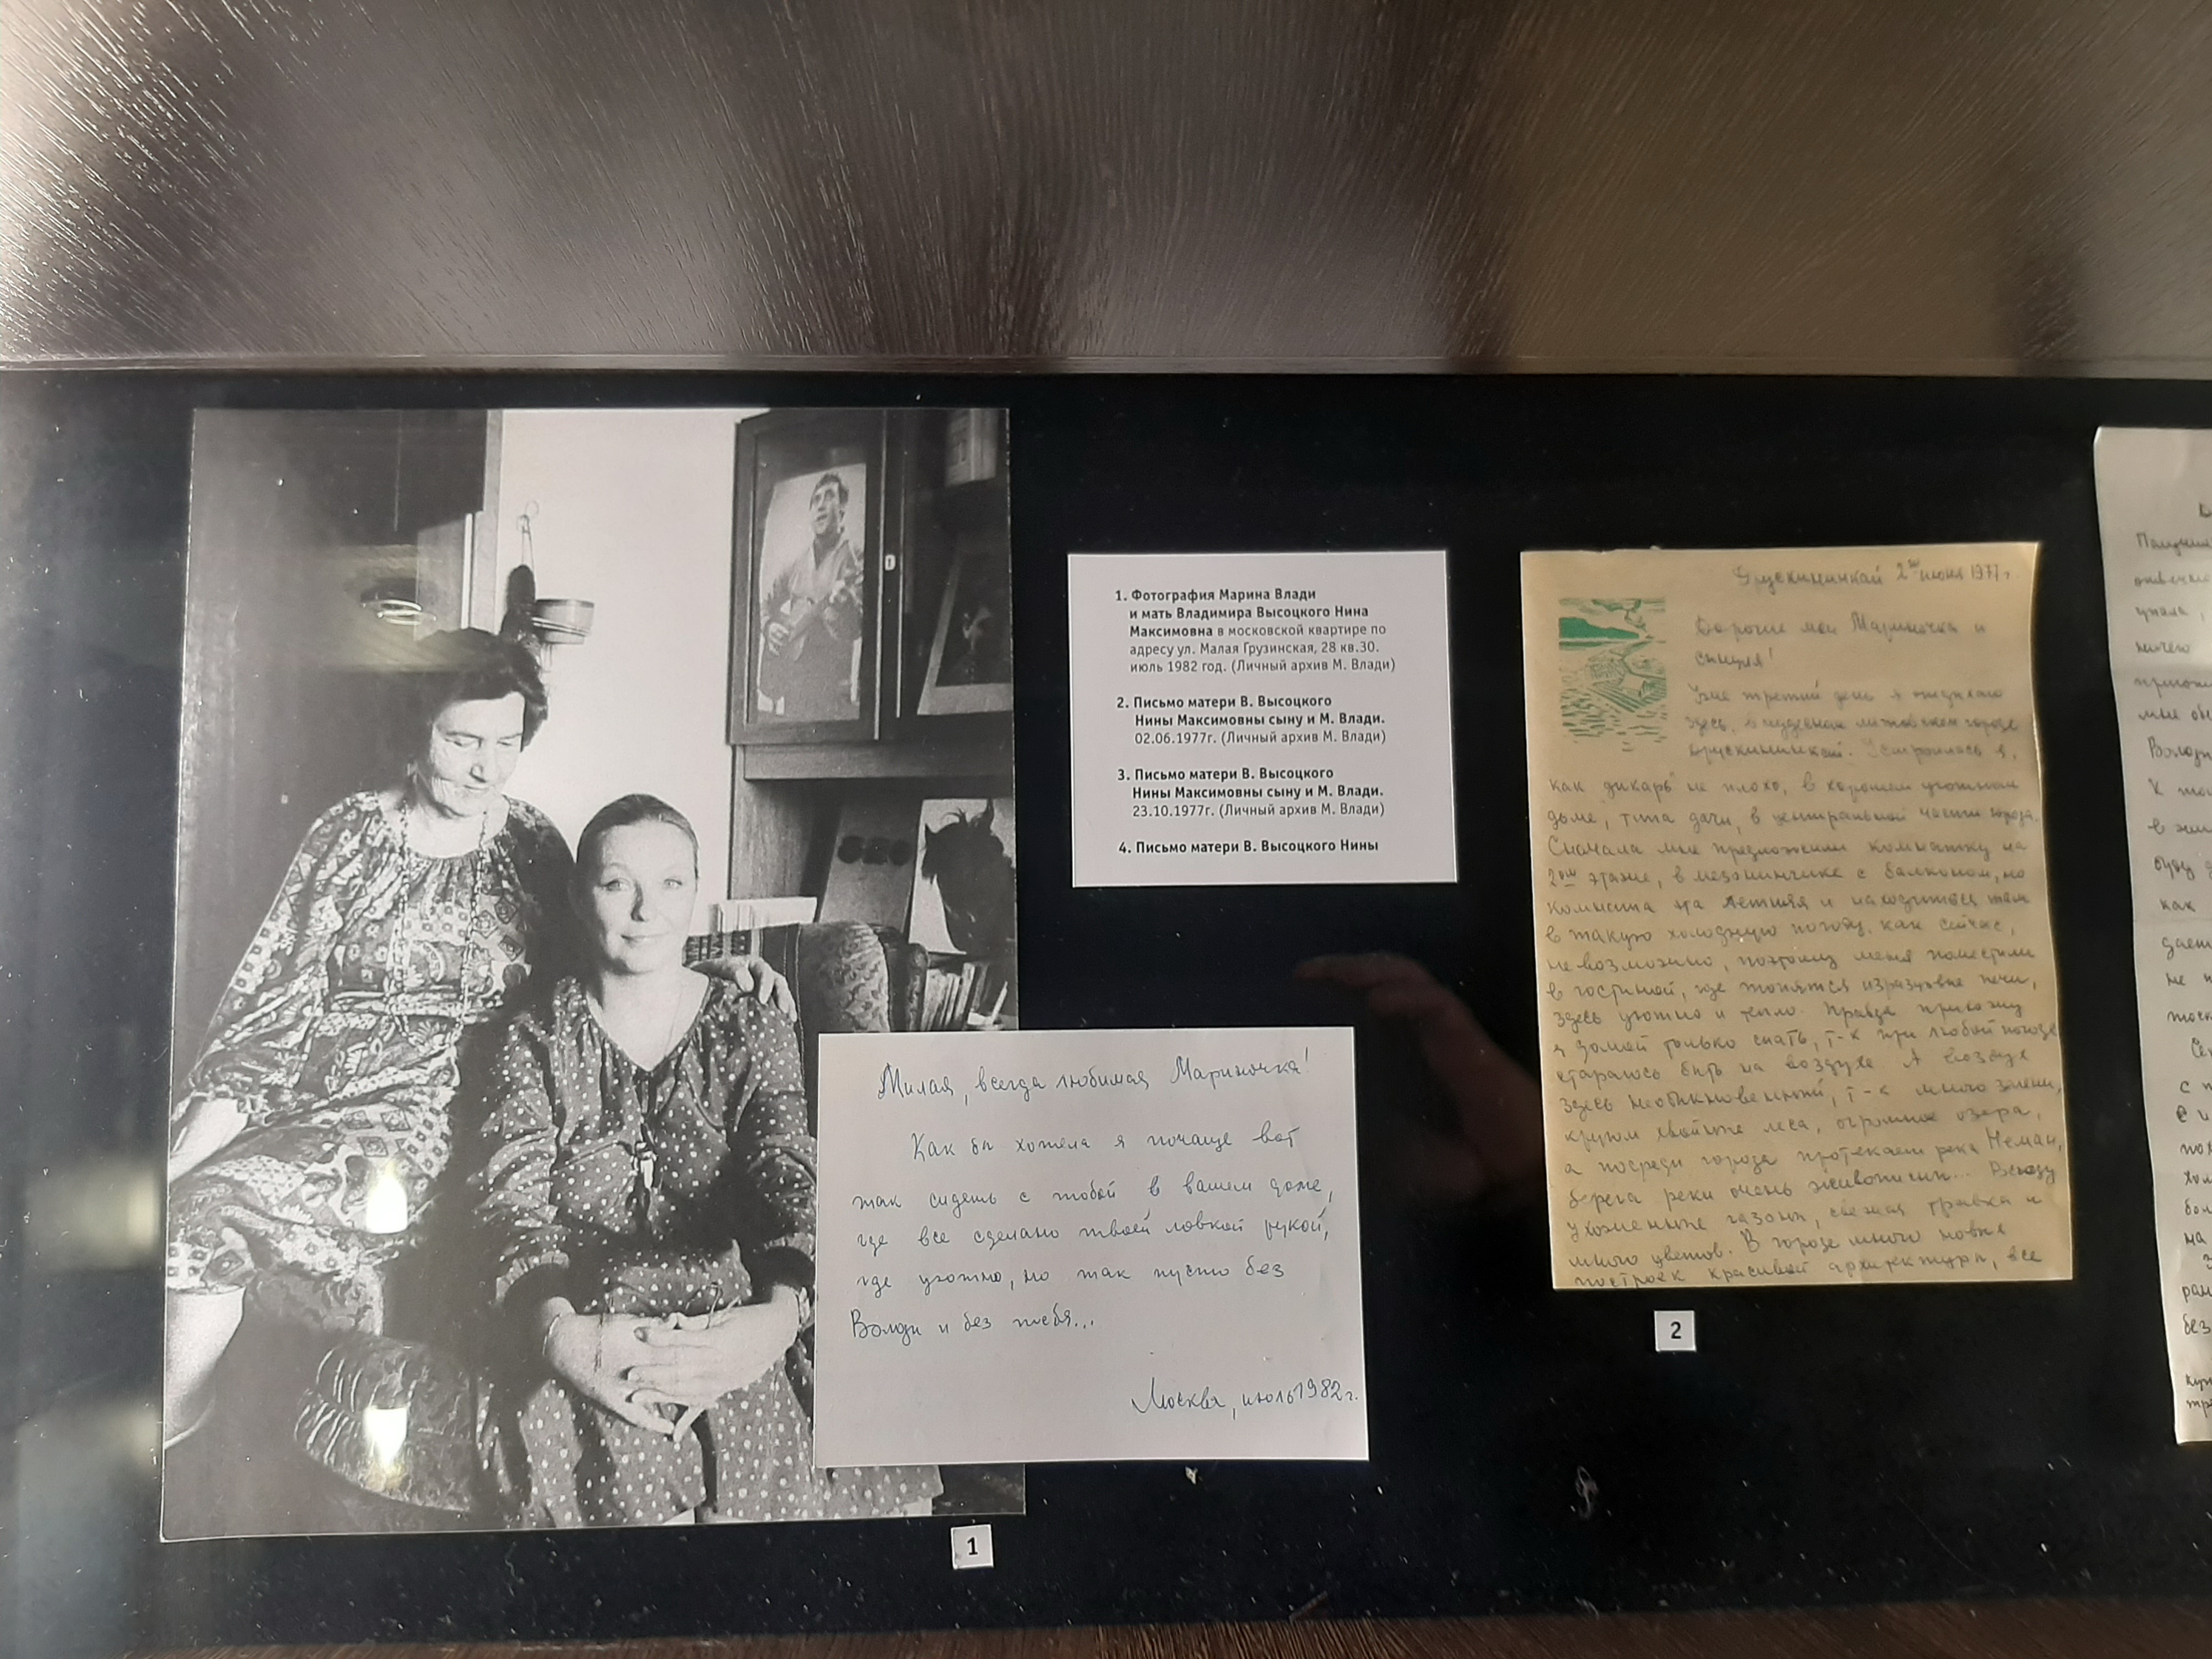 1. Фотография Марина Влади
и мать Владимира Высоцкого Нина
Максимовна в московской квартире по
адресу ул. Малая Грузинская, 28 кв.30.
июль 1982 год. (Личный архив М. Влади)
2. Письмо матери В. Высоцкого
Нины Максимовны сыну и М. Влади.
02.06.1977г. (Личный архив М. Влади)
3. Письмо матери В. Высоцкого
Нины Максимовны сыну и М. Влади.
23.10.1977г. (Личный архив М. Влади)
4. Письмо матери В. Высоцкого Нины
Милая, всегда любимая Мариночка!
Как бы хотела я почаще вот
так сидеть с тобой в вашем доме,
где все сделано твоей ловкой рукой,
где уютно, но так пусто без
Володи и без тебя...
Москва, июль 1982 г.
1
Друскининкай 2ое июня 1977 г.
Дорогие мои Мариночка и
сынуля!
Уже третий день я отдыхаю
здесь, в чудесном литовском городе
Друскининкай. Устроилась я,
как "дикарь" не плохо, в хорошем уютном
доме, типа дачи, в центральной части города.
Сначала мне предложили комнатку на
2ом этаже, в мезонинчике с балконом, но
комната эта летняя и находиться там
в такую холодную погоду, как сейчас,
невозможно, поэтому меня поместили
в гостиной, где топятся изразцовые печи,
здесь уютно и тепло. Правда прихожу
я домой только спать, т-к при любой погоде
стараюсь быть на воздухе. А воздух
здесь необыкновенный, т-к много зелени,
кругом хвойные леса, огромные озера,
а посреди города протекает река Неман,
берега реки очень живописны... Всюду
ухоженные газоны, свежая травка и
много цветов. В городе много новых
построек красивой архитектуры, все
2
как
не
с
на
без